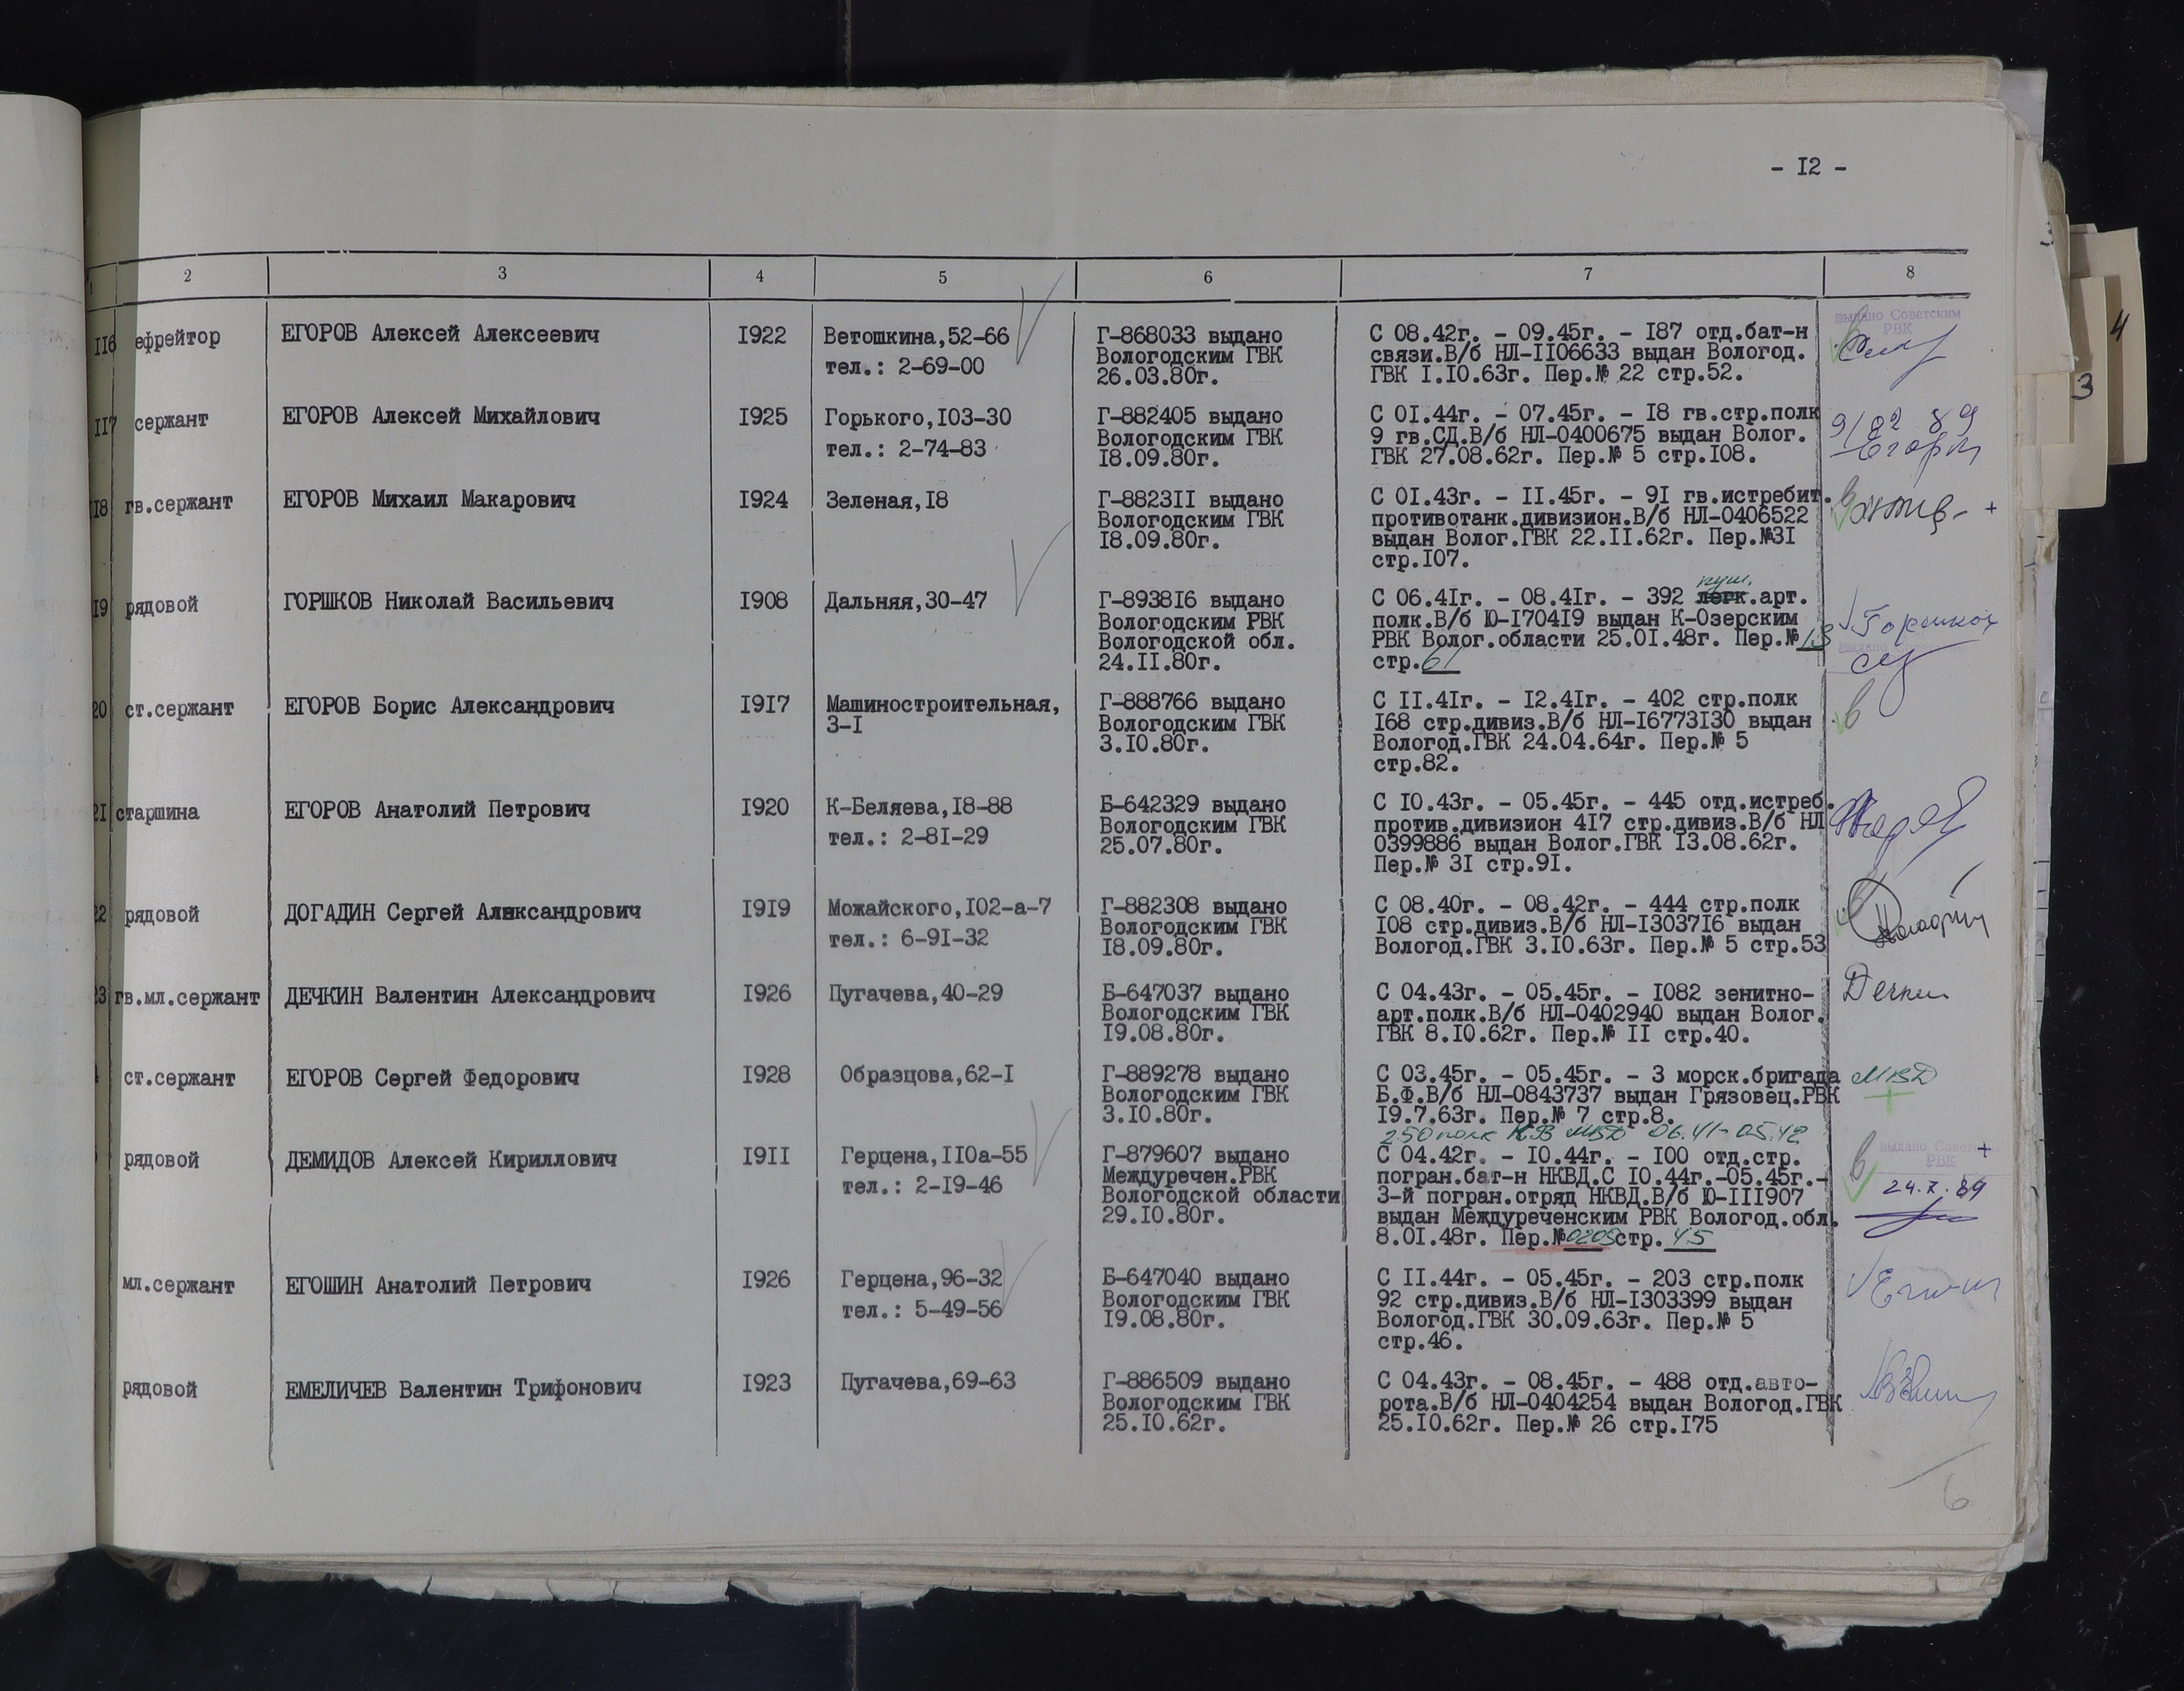 - I2 -
1 2 3 4 5 6 7 8
II6 ефрейтор ЕГОРОВ Алексей Алексеевич I922 Ветошкина,52-66 Г-868033 выдано С 08.42г. - 09.45г. - I87 отд.бат-н
Выдано Советским
РВК
тел.: 2-69-00 Вологодским ГВК связи.В/б НЛ-II06633 выдан Вологод.
26.03.80г. ГВК I.I0.63г. Пер.№ 22 стр.52.
II7 сержант ЕГОРОВ Алексей Михайлович I925 Горького,I03-30 Г-882405 выдано С 0I.44г. - 07.45г. - I8 гв.стр.полк
тел.: 2-74-83 Вологодским ГВК 9 гв.СД.В/б НЛ-0400675 выдан Волог.
I8.09.80г. ГВК 27.08.62г. Пер.№ 5 стр.I08.
I8 гв.сержант ЕГОРОВ Михаил Макарович I924 Зеленая,I8 Г-8823II выдано С 0I.43г. - II.45г. - 9I гв.истребит.
Вологодским ГВК противотанк.дивизион.В/б НЛ-0406522 +
I8.09.80г. выдан Волог.ГВК 22.II.62г. Пер.№3I
стр.I07.
пуш.
I9 рядовой ГОРШКОВ Николай Васильевич I908 Дальняя,30-47 Г-8938I6 выдано С 06.4Iг. - 08.4Iг. - 392 легк.арт.
Вологодским РВК полк.В/б Ю-I704I9 выдан К-Озерским Горшков
Вологодской обл. РВК Волог.области 25.0I.48г. Пер.№ 13
24.II.80г. стр.61
20 ст.сержант ЕГОРОВ Борис Александрович I9I7 Машиностроительная, Г-888766 выдано С II.4Iг. - I2.4Iг. - 402 стр.полк
3-I Вологодским ГВК I68 стр.дивиз.В/б НЛ-I6773I30 выдан в
3.I0.80г. Вологод.ГВК 24.04.64г. Пер.№ 5
стр.82.
2I старшина ЕГОРОВ Анатолий Петрович I920 К-Беляева,I8-88 Б-642329 выдано С I0.43г. - 05.45г. - 445 отд.истреб.
тел.: 2-8I-29 Вологодским ГВК против.дивизион 4I7 стр.дивиз.В/б НЛ
25.07.80г. 0399886 выдан Волог.ГВК I3.08.62г.
Пер.№ 3I стр.9I.
22 рядовой ДОГАДИН Сергей Александрович I9I9 Можайского,I02-а-7 Г-882308 выдано С 08.40г. - 08.42г. - 444 стр.полк
тел.: 6-9I-32 Вологодским ГВК I08 стр.дивиз.В/б НЛ-I3037I6 выдан
I8.09.80г. Вологод.ГВК 3.I0.63г. Пер.№ 5 стр.53
23 гв.мл.сержант ДЕЧКИН Валентин Александрович I926 Пугачева,40-29 Б-647037 выдано С 04.43г. - 05.45г. - I082 зенитно-
Вологодским ГВК арт.полк.В/б НЛ-0402940 выдан Волог.
I9.08.80г. ГВК 8.I0.62г. Пер.№ II стр.40.
ст.сержант ЕГОРОВ Сергей Федорович I928 Образцова,62-I Г-889278 выдано С 03.45г. - 05.45г. - 3 морск.бригада МВД
Вологодским ГВК Б.Ф.В/б НЛ-0843737 выдан Грязовец.РВК +
3.I0.80г. I9.7.63г. Пер.№ 7 стр.8.
250 полк КВ МВД 06.41-05.42
рядовой ДЕМИДОВ Алексей Кириллович I9II Герцена,II0а-55 Г-879607 выдано С 04.42г. - I0.44г. - I00 отд.стр. в +
РВК
тел.: 2-I9-46 Междуречен.РВК погран.бат-н НКВД.С I0.44г.-05.45г.-
Вологодской области 3-й погран.отряд НКВД.В/б Ю-III907 24.X.89
29.I0.80г. выдан Междуреченским РВК Вологод.обл.
8.0I.48г. Пер.№0209стр. 45
мл.сержант ЕГОШИН Анатолий Петрович I926 Герцена,96-32 Б-647040 выдано С II.44г. - 05.45г. - 203 стр.полк
тел.: 5-49-56 Вологодским ГВК 92 стр.дивиз.В/б НЛ-I303399 выдан
I9.08.80г. Вологод.ГВК 30.09.63г. Пер.№ 5
стр.46.
рядовой ЕМЕЛИЧЕВ Валентин Трифонович I923 Пугачева,69-63 Г-886509 выдано С 04.43г. - 08.45г. - 488 отд.авто-
Вологодским ГВК рота.В/б НЛ-0404254 выдан Вологод.ГВК
25.I0.62г. 25.I0.62г. Пер.№ 26 стр.I75
6
3
4